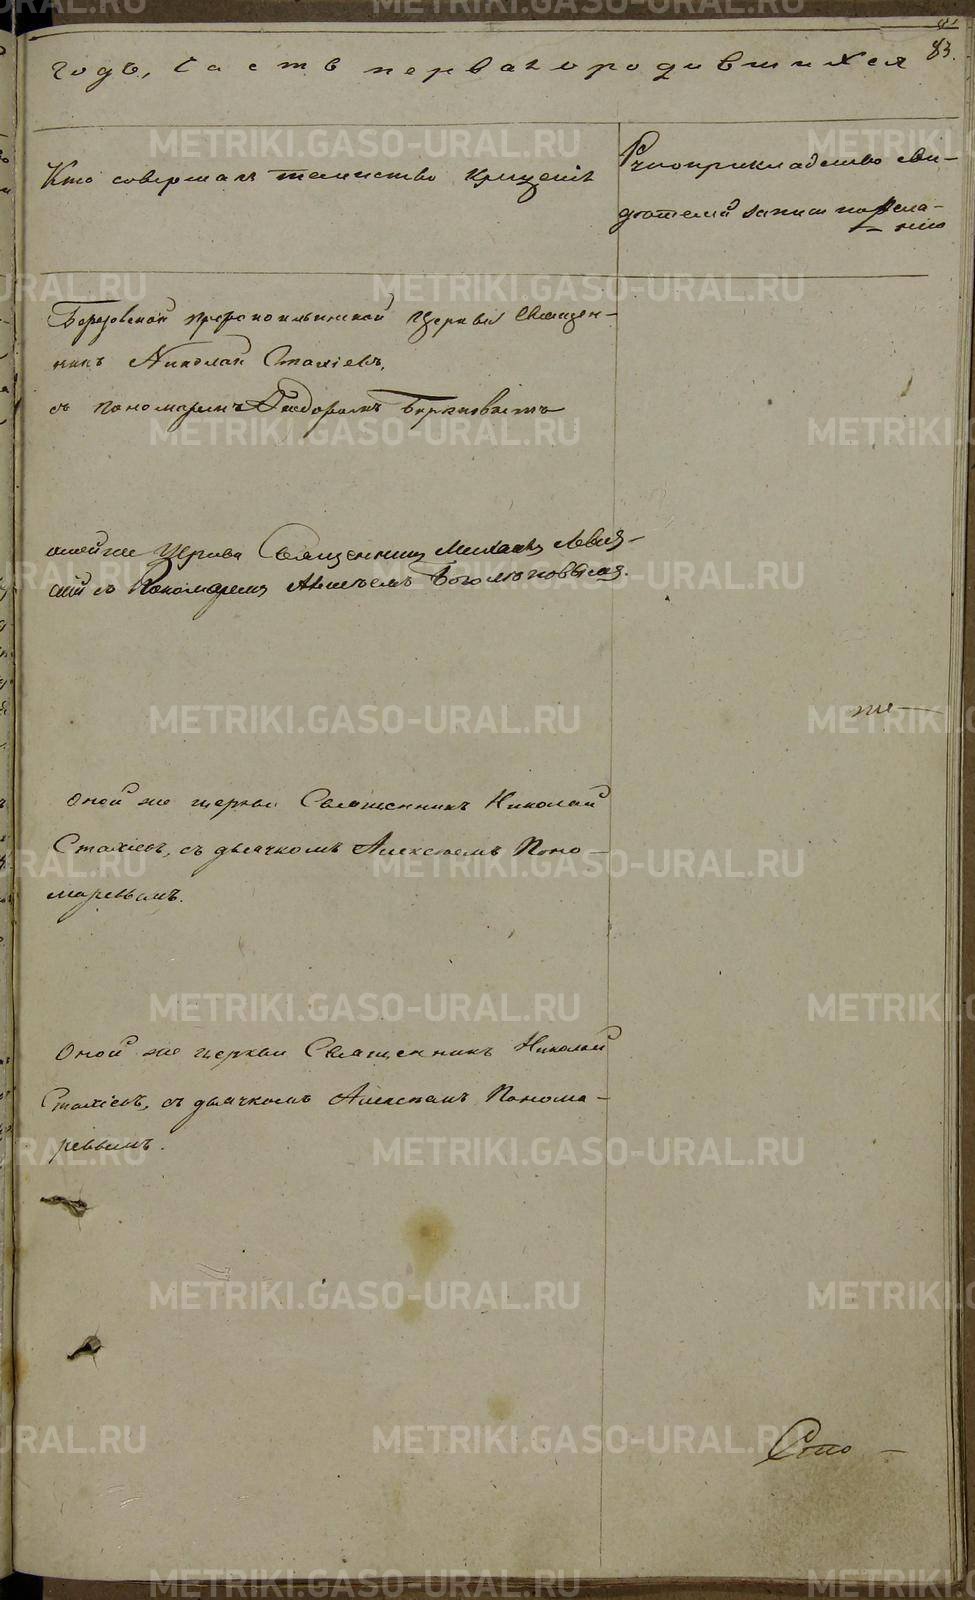 83.
годъ, часть перваго родившихся
Кто совершалъ таинство крещенія
Рукоприкладство сви-
дѣтелей записи по жела-
нію
Березовской церкви Священ-
никъ Николай Стахіевъ,
съ пономаремъ Ѳеодоромъ
тойже Церкви Священникъ Михаилъ
съ Пономаремъ Боголюбовымъ.
Оной же церкви Священникъ Николай
Стахіевъ, съ дьячкомъ Алексѣемъ Поно-
маревымъ.
Оной же церкви Священникъ Николай
Стахіевъ, съ дьячкомъ Алексѣемъ Понома-
ревымъ.
METRIKI.GASO-URAL.RU